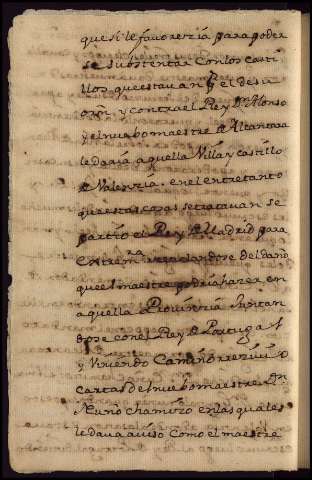 que si le favorezia para poder
se substentar con los casti
llos que estavan P el desu
y contra el Rey Dn Alonso
y el nuebo maestre de Alcantara
le dava aquella Villa y castillo
de Valenzia. en el entretanto
que estas cosas se tratavan se
partio el Rey de Madrid para
Extremra rezelandose del daño
que el maestre podria hazer en
aquella Provinzia juntan
dose con el Rey de Portugal
y Viniendo Camino rezivio
cartas del nuebo maestre Dn
Nuno chamizo en las quales
le dava aviso como el maestre